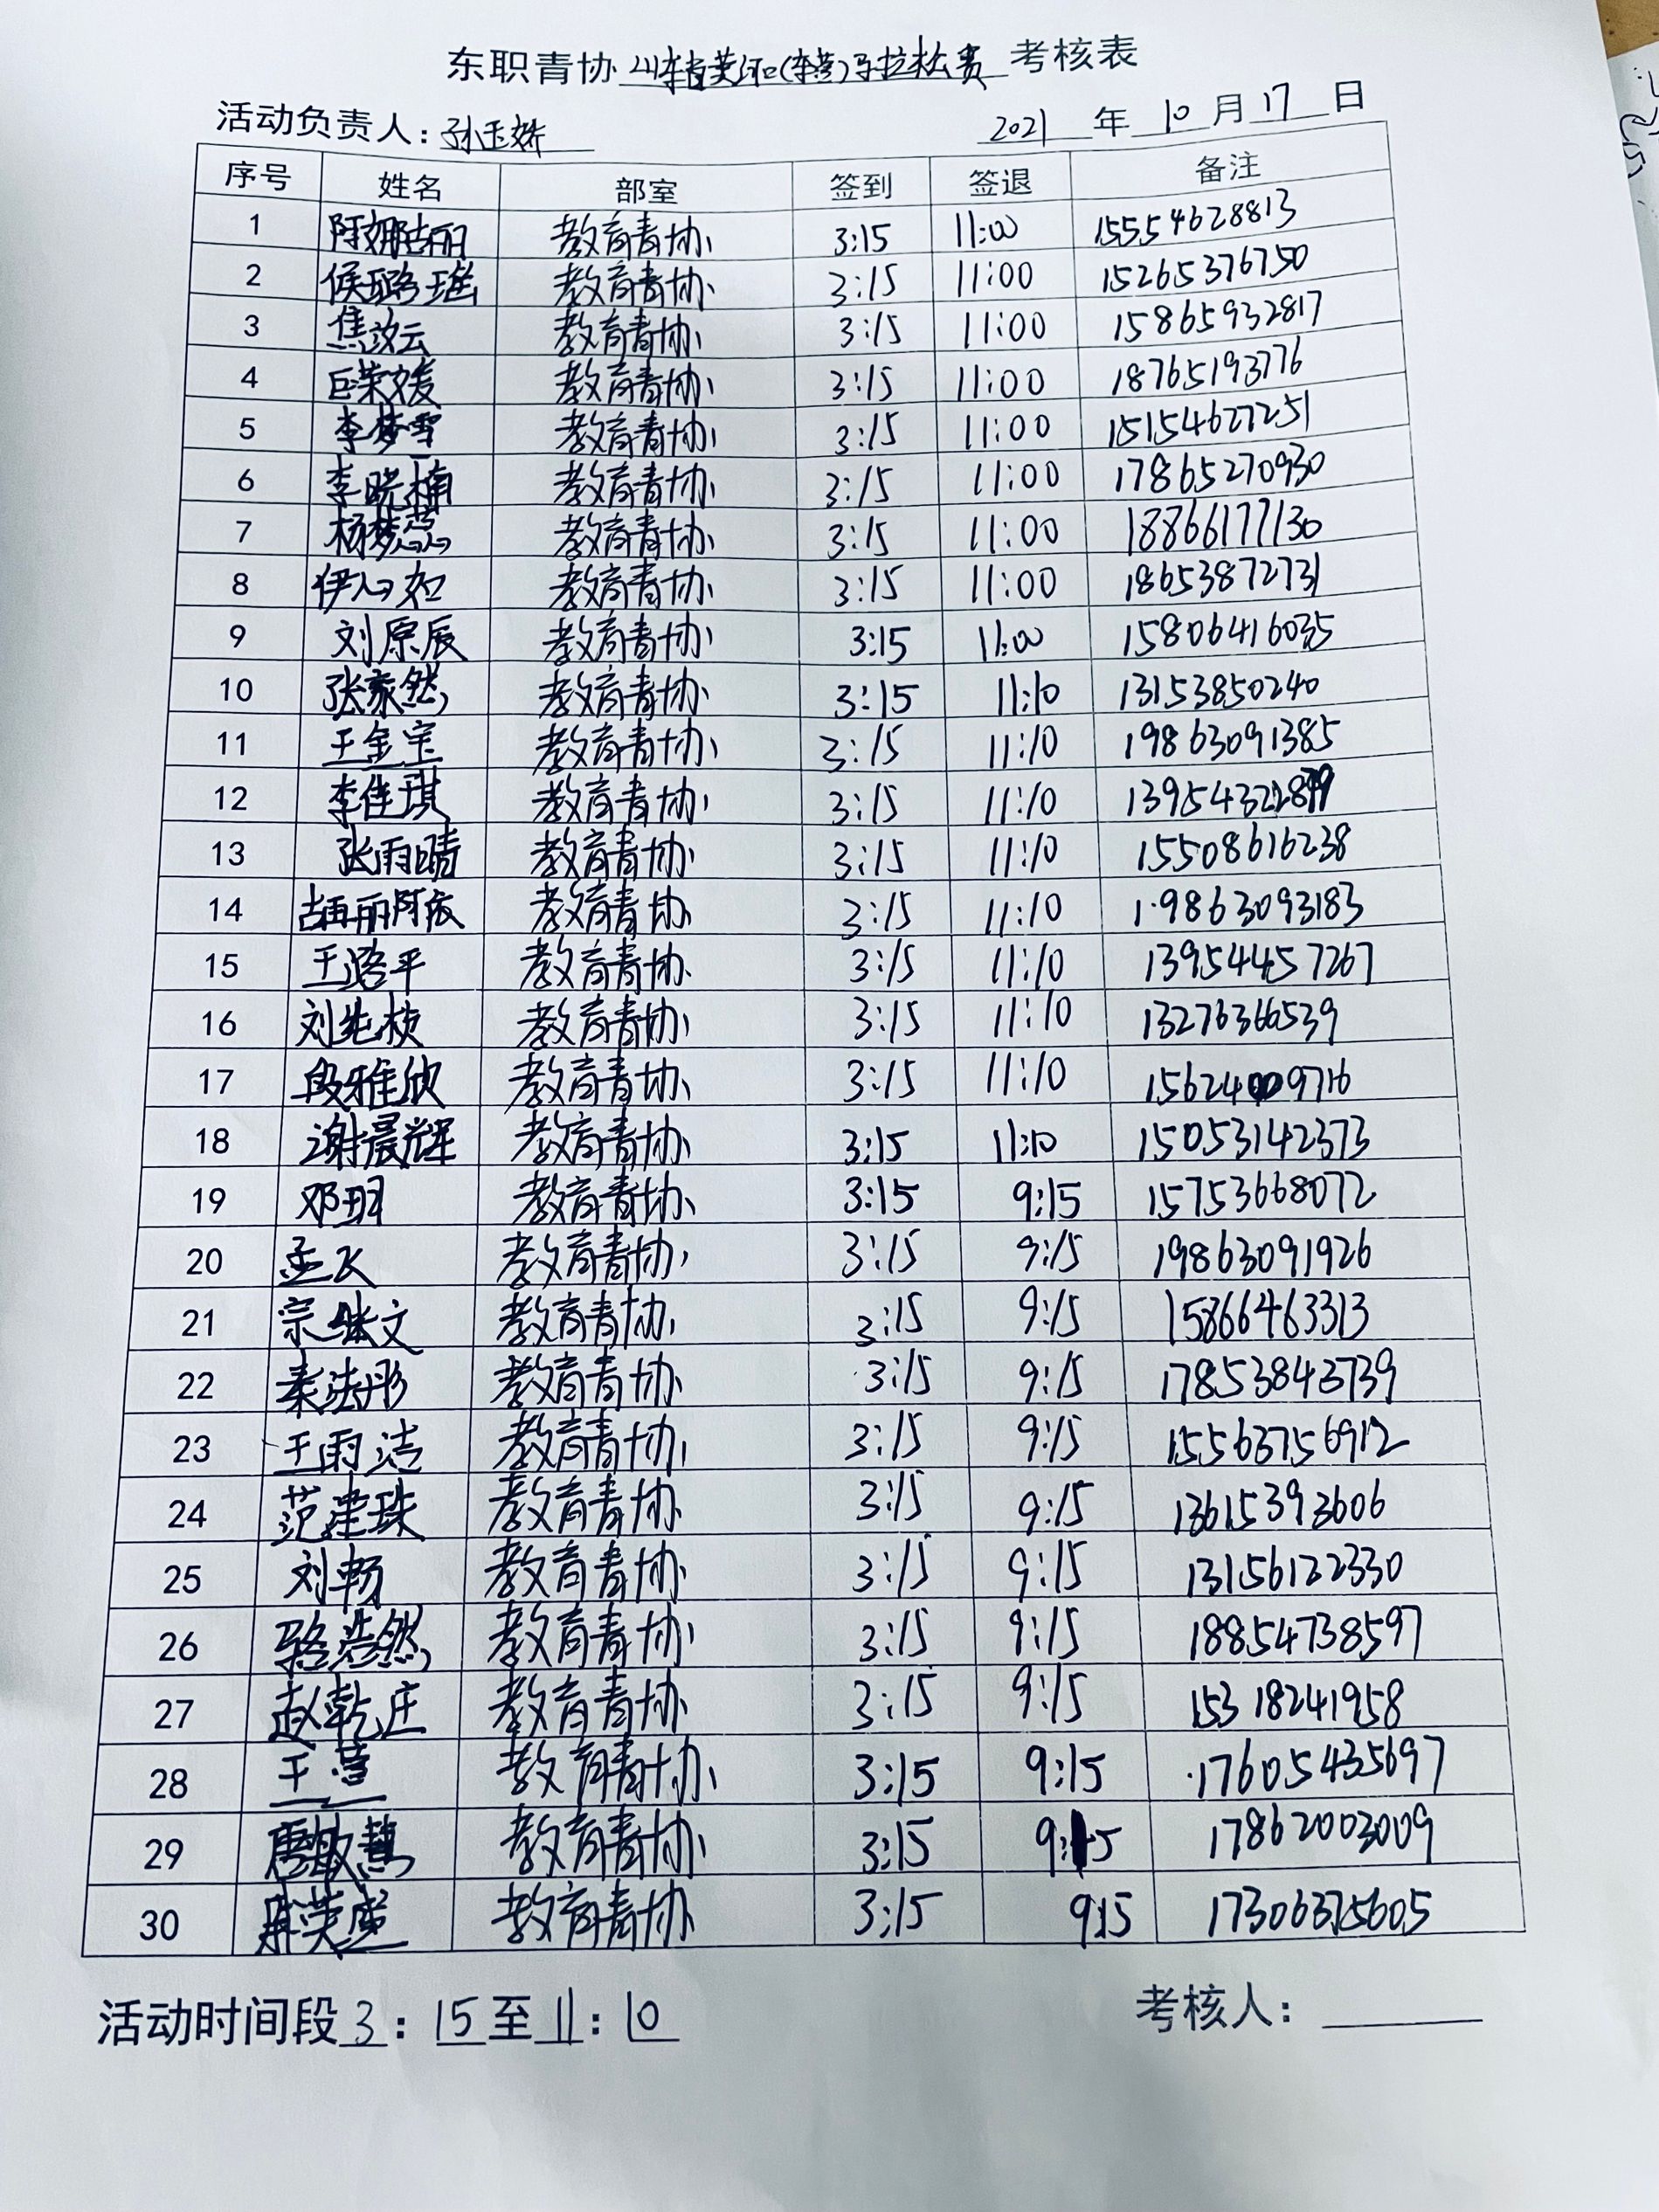 东职青协 山东省黄河口(东营)马拉松赛 考核表
活动负责人: 孙玉娇 2021 年 10 月 17 日
序号 姓名 部室 签到 签退 备注
1 阿娜古丽 教育青协 3:15 11:00 15554628813
2 侯璐瑶 教育青协 3:15 11:00 15265376750
3 焦汝云 教育青协 3:15 11:00 15865932817
4 巨荣媛 教育青协 3:15 11:00 18765193776
5 李梦雪 教育青协 3:15 11:00 15154627251
6 李晓楠 教育青协 3:15 11:00 17865270930
7 杨梦蕊 教育青协 3:15 11:00 18866177130
8 伊心如 教育青协 3:15 11:00 18653872731
9 刘原辰 教育青协 3:15 11:00 15806416035
10 张家然 教育青协 3:15 11:10 13153850240
11 王金宝 教育青协 3:15 11:10 19863091385
12 李佳琪 教育青协 3:15 11:10
13 张雨晴 教育青协 3:15 11:10 15508616238
14 古再丽阿依 教育青协 3:15 11:10 19863093183
15 王潞平 教育青协 3:15 11:10 13954457267
16 刘先枝 教育青协 3:15 11:10 13276366539
17 段雅欣 教育青协 3:15 11:10 15624009716
18 谢晨辉 教育青协 3:15 11:10 15053142373
19 邓玥 教育青协 3:15 9:15 15753668072
20 孟飞 教育青协 3:15 9:15 19863091926
21 宗继文 教育青协 3:15 9:15 15866463313
22 秦法彤 教育青协 3:15 9:15 17853843739
23 王雨洁 教育青协 3:15 9:15 15563756912
24 范建珠 教育青协 3:15 9:15 13615393606
25 刘畅 教育青协 3:15 9:15 13156122330
26 骆浩然 教育青协 3:15 9:15 18854738597
27 赵乾庄 教育青协 3:15 9:15 15318241958
28 王萱 教育青协 3:15 9:15 17605435697
29 教育青协 3:15 9:15 17862003009
30 教育青协 3:15 9:15 17306375605
活动时间段 3 : 15 至 11 : 10 考核人: